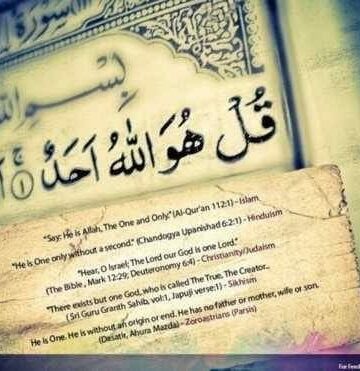 سورة
بسم الله
قُلْ هُوَ اللّٰهُ اَحَدٌ ۝١
"Say: He is Allah, The One and Only." (Al-Qur'an 112:1) - Islam
"He is One only without a second." (Chandogya Upanishad 6:2:1) - Hinduism
"Hear, O Israel; The Lord our God is one Lord."
(The Bible, Mark 12:29; Deuteronomy 6:4) - Christianity/Judaism
"There exists but one God, who is called The True, The Creator..
( Sri Guru Granth Sahib, vol:1, Japuji verse:1) - Sikhism
He is One. He is without an origin or end. He has no father or mother, wife or son.
(Desatir, Ahura Mazda) - Zoroastrians (Parsis)
For